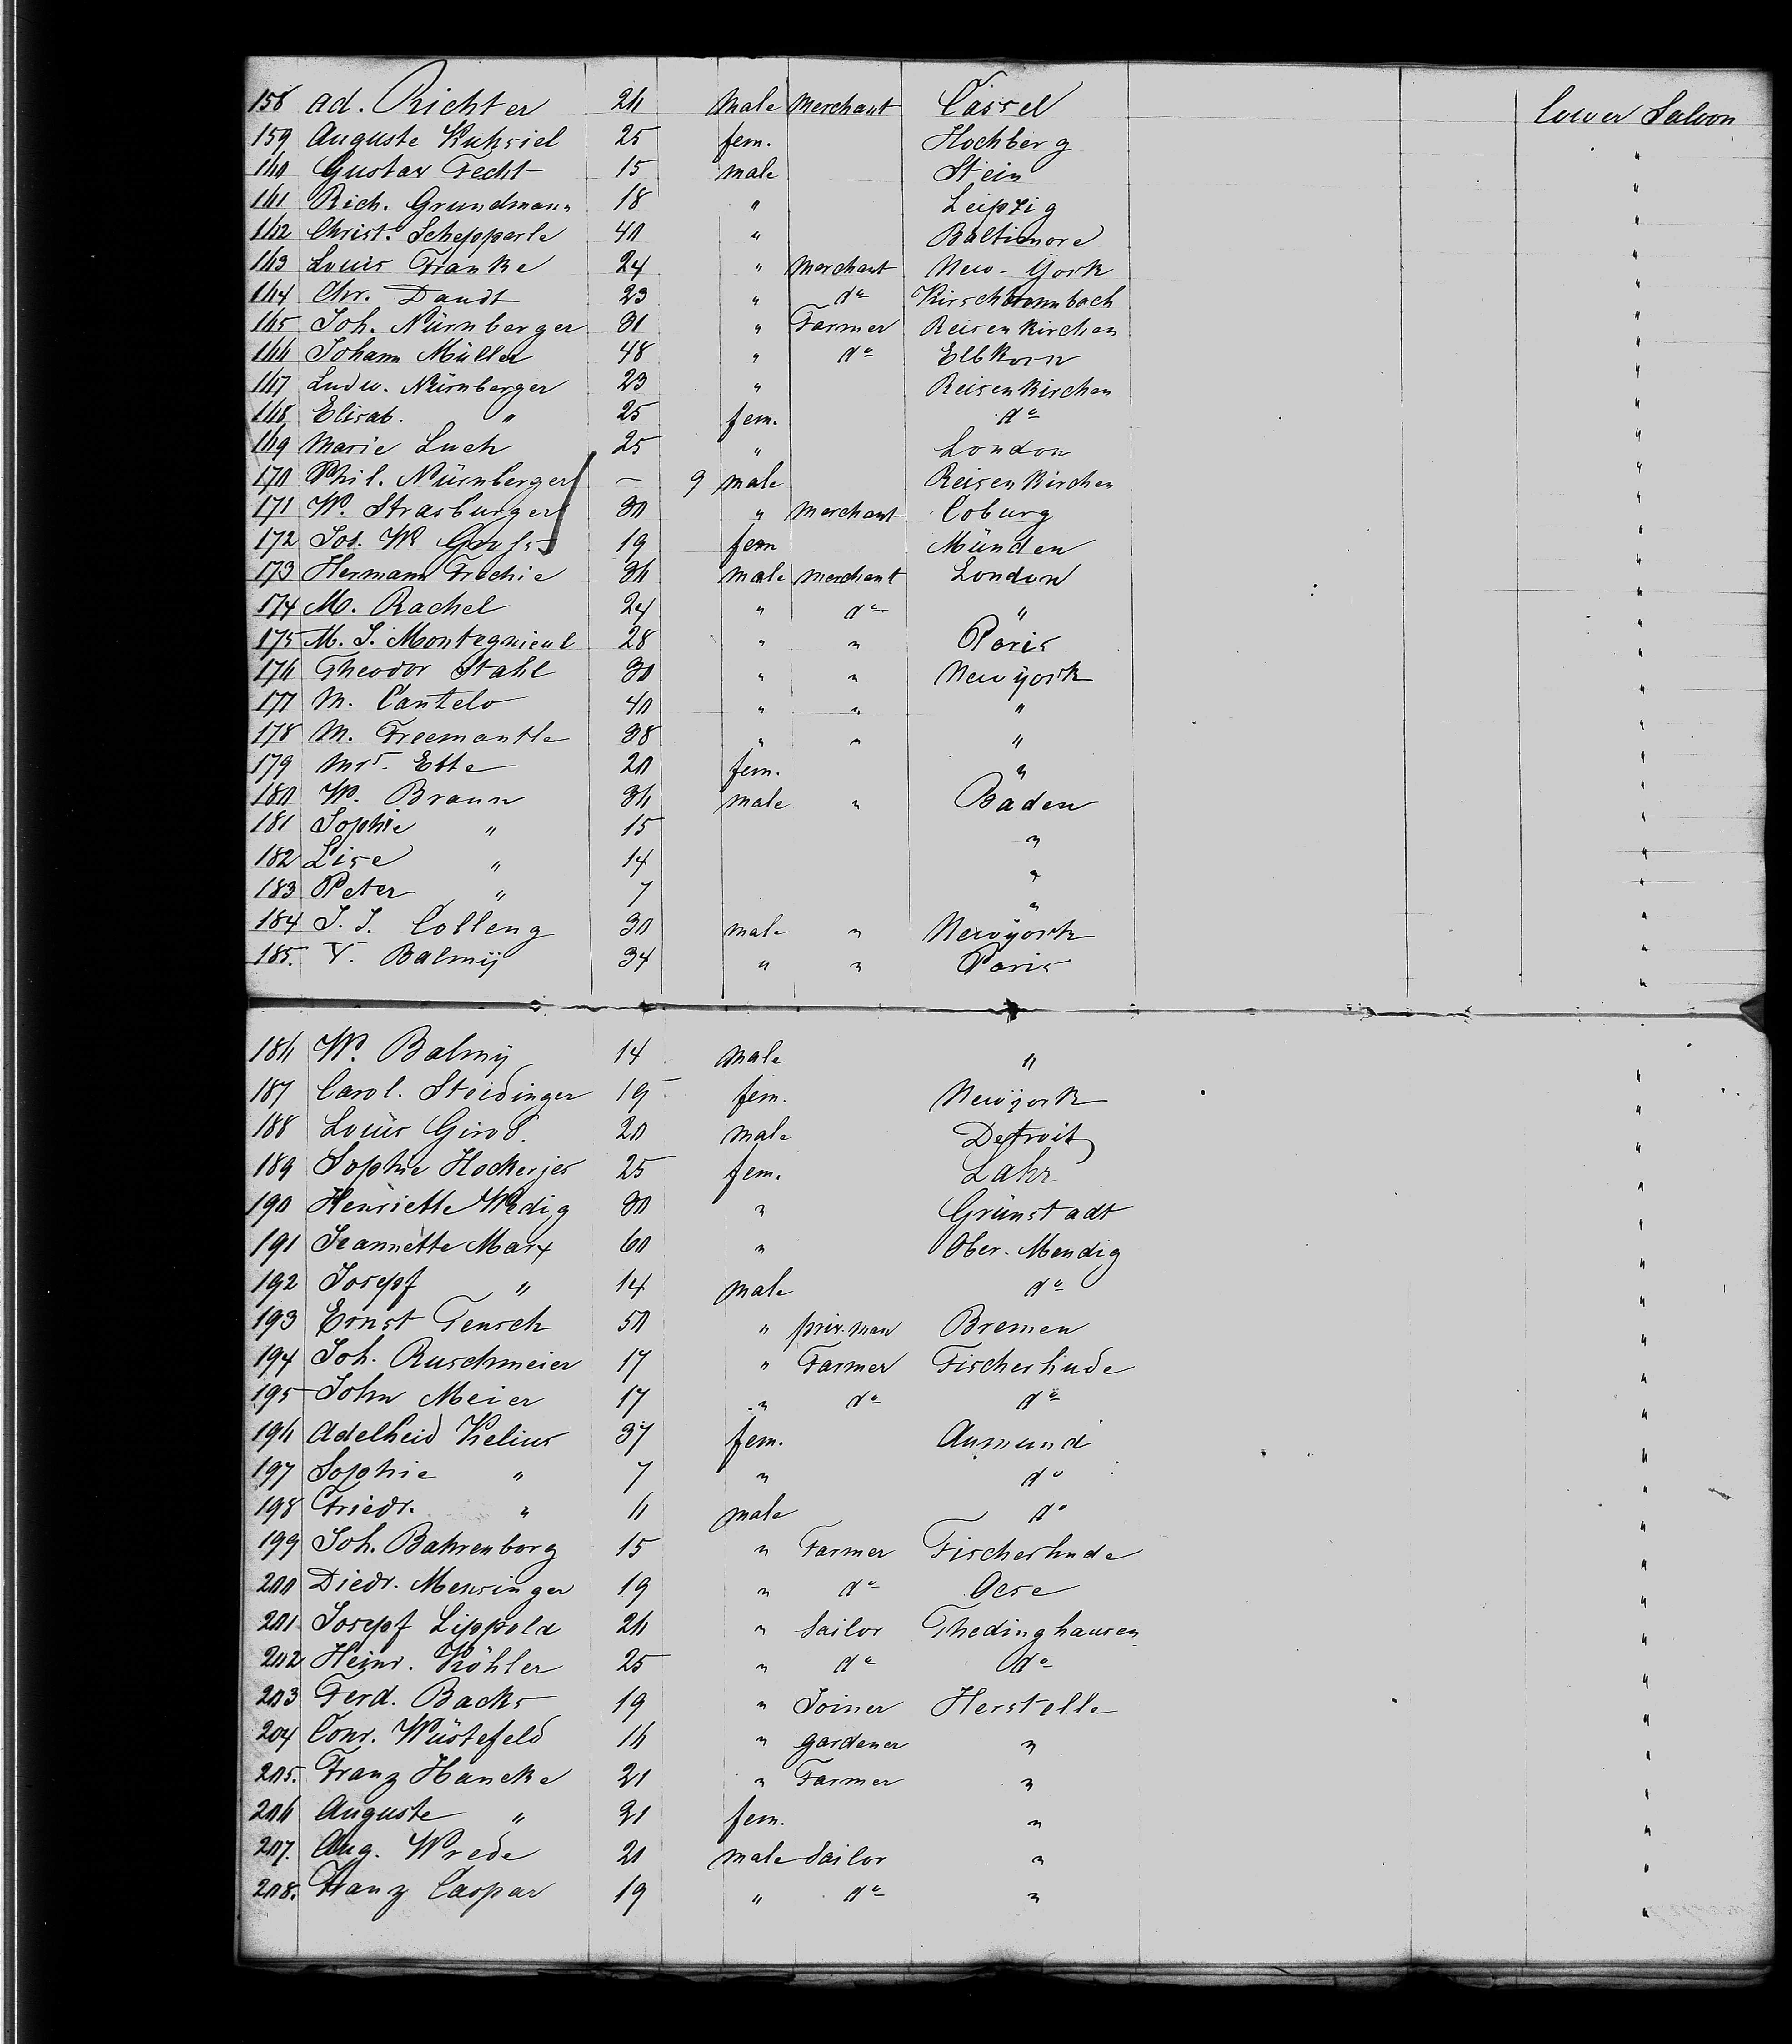 158 Ad. Richter 26 male Merchant Cassel lower Saloon
159 Auguste Kuhsiel 25 fem. Hochberg "
160 Gustav Fecht 15 male Stein "
161 Rich. Grundmann 18 " Leipzig "
162 Christ. Schepperle 40 " Baltimore "
163 Louis Franke 24 " Merchant New-York "
164 Chr. Dandt 23 " do "
165 Joh. Nürnberger 31 " Farmer Reisenkirchen "
166 Johann Müller 48 " do Elbkorn "
167 Ludw. Nürnberger 23 " Reisenkirchen "
168 Elisab. " 25 fem. do "
169 Marie Luch 25 " London "
170 Phil. Nürnberger — 9 male Reisenkirchen "
171 W. Strasburger 30 " Merchant Coburg "
172 Jos. W. 19 fem Münden "
173 Hermann Frechie 36 male Merchant London "
174 M. Rachel 24 " do " "
175 M. S. 28 " " Paris "
176 Theodor Stahl 30 " " New york "
177 M. Cantelo 40 " " " "
178 M. Freemantle 38 " " " "
179 Mrs. Ette 20 fem. " "
180 W. Braun 36 male " Baden "
181 Sophie " 15 " "
182 Lise " 14 " "
183 Peter " 7 " "
184 J. J. Colleng 30 male " Newyork "
185. V. Balmÿ 34 " " Paris "
186 W. Balmÿ 14 male " "
187 Carol. Steidinger 19 fem. Newyork "
188 Louis Girod. 20 male Detroit "
189 Sophie Hockerjes 25 fem. Lahr "
190 Henriette Wedig 30 " Grünstadt "
191 Jeannette Marx 60 " Ober-Mendig "
192 Josepf " 14 male do "
193 Ernst Tensch 50 " priv. man Bremen "
194 Joh. Ruschmeier 17 " Farmer Fischerhude "
195 John Meier 17 " do do "
196 Adelheid Kelius 37 fem. Aumund "
197 Sophie " 7 " do "
198 Friedr. " 6 male do "
199 Joh. Bahrenborg 15 " Farmer Fischerhude "
200 Diedr. Mensinger 19 " do Oese "
201 Josepf Lippold 26 " Sailor Thedinghausen "
202 Heinr. Köhler 25 " do do "
203 Ferd. Backs 19 " Joiner Herstelle "
204 Conr. Wüstefeld 16 " gardener " "
205. Franz Hancke 21 " Farmer " "
206 Auguste " 21 fem. " "
207. Aug. Wrede 21 male Sailor " "
208. Franz Caspar 19 " do " "